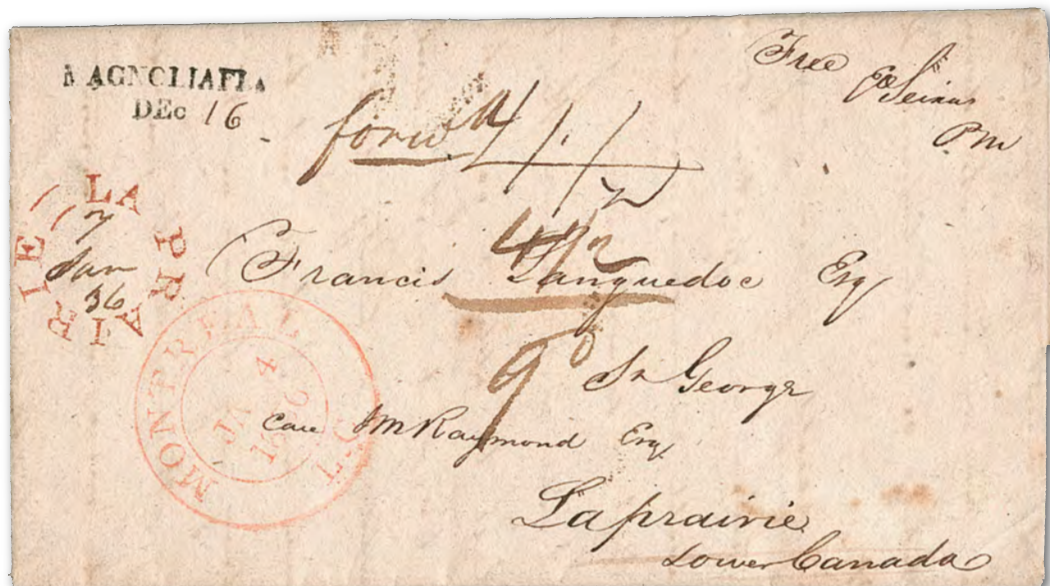 MAGNOLIAFLA
DEC 16
Free
PM
forwd 4/1/
LA PRAIRIE
7
Jan
36
4 1/2
Francis Languedoc Esq
MONTREAL L.C.
JA 4
1836
9d
St George
Care JM Raymond Esq
Laprairie
Lower Canada